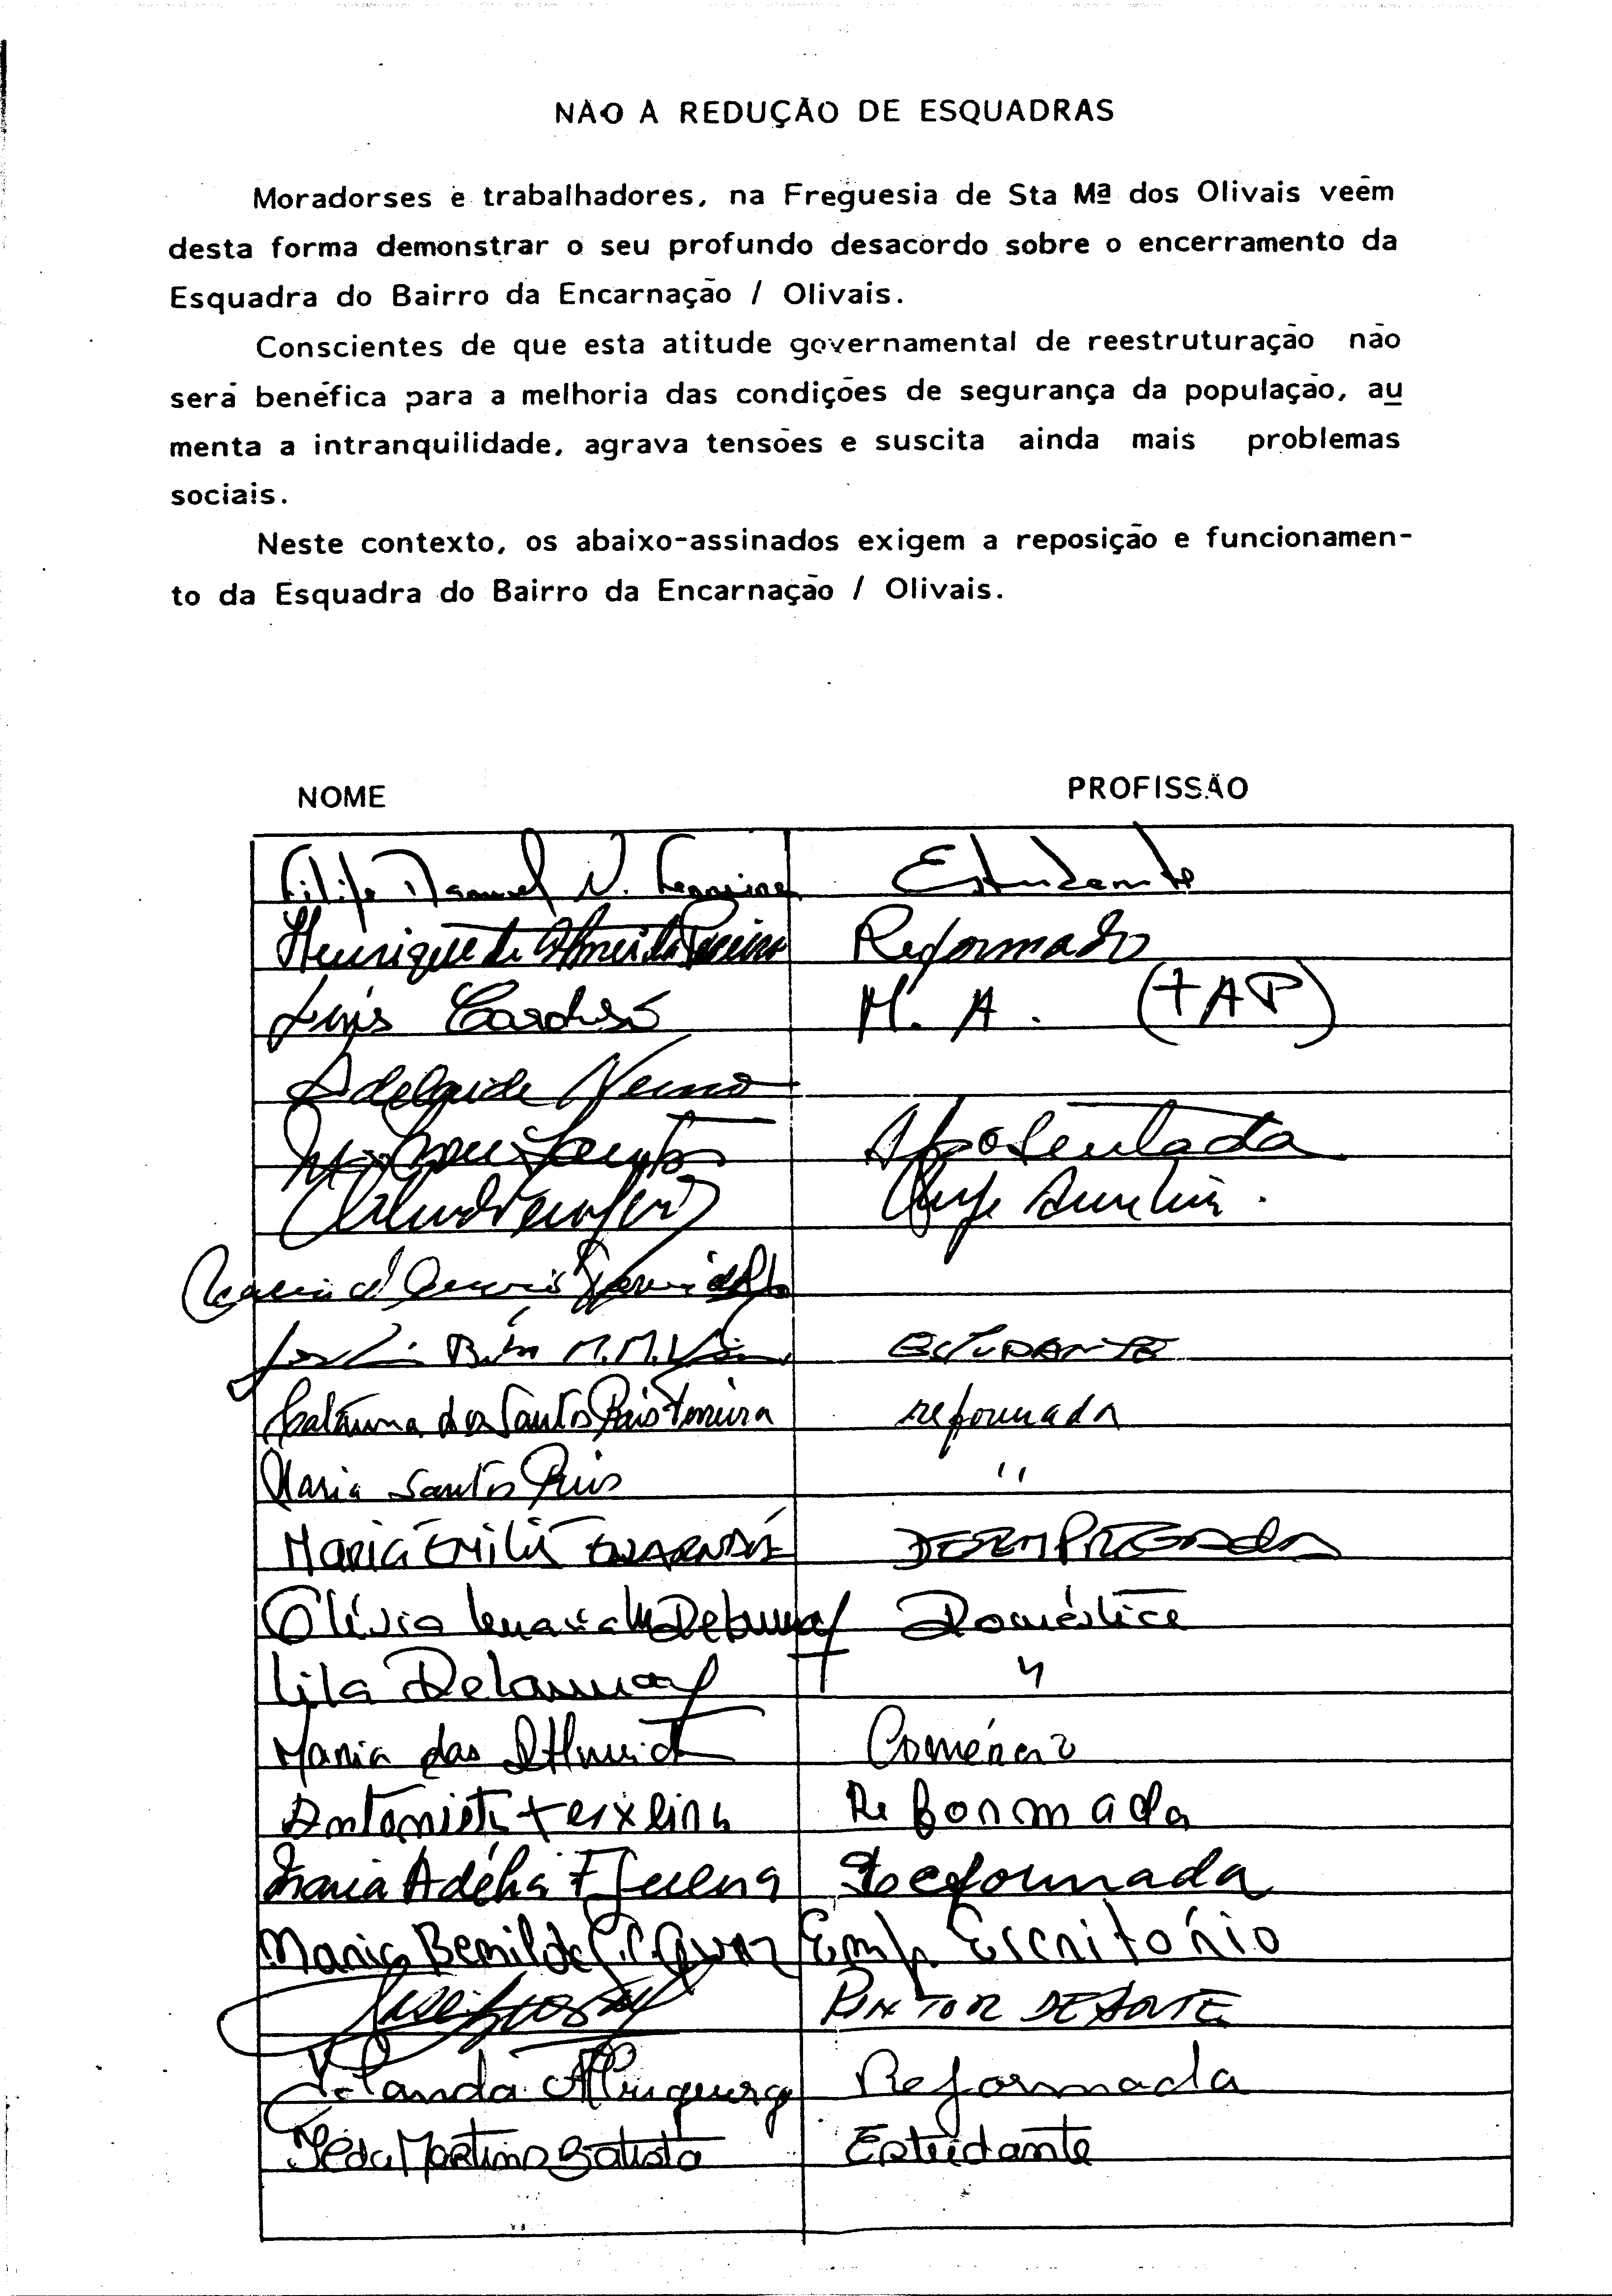 NÃO A REDUÇÃO DE ESQUADRAS
Moradorses e trabalhadores, na Freguesia de Sta Mª dos Olivais veêm
desta forma demonstrar o seu profundo desacordo sobre o encerramento da
Esquadra do Bairro da Encarnação / Olivais.
Conscientes de que esta atitude governamental de reestruturação não
será benéfica para a melhoria das condições de segurança da população, au
menta a intranquilidade, agrava tensões e suscita ainda mais problemas
sociais.
Neste contexto, os abaixo-assinados exigem a reposição e funcionamen-
to da Esquadra do Bairro da Encarnação / Olivais.
NOME PROFISSÃO
Filipe Manuel N. Estudante
Henrique de Almeida Reformado
Luis Cardoso M. A. (TAP)
Adelaide
Aposentada
Maria
M.M. ESTUDANTE
dos Santos Reis reformada
Maria Santos Reis "
Maria Emília DESEMPREGADA
Olívia Maria Doméstica
Lila Delaunay "
Maria das Comércio
Antonieta Teixeira Reformada
Maria Adélia F Reformada
Maria Benilde Emp. Escritório
PINTOR DE ARTE
Iolanda Albuquerque Reformada
Martins Batista Estudante